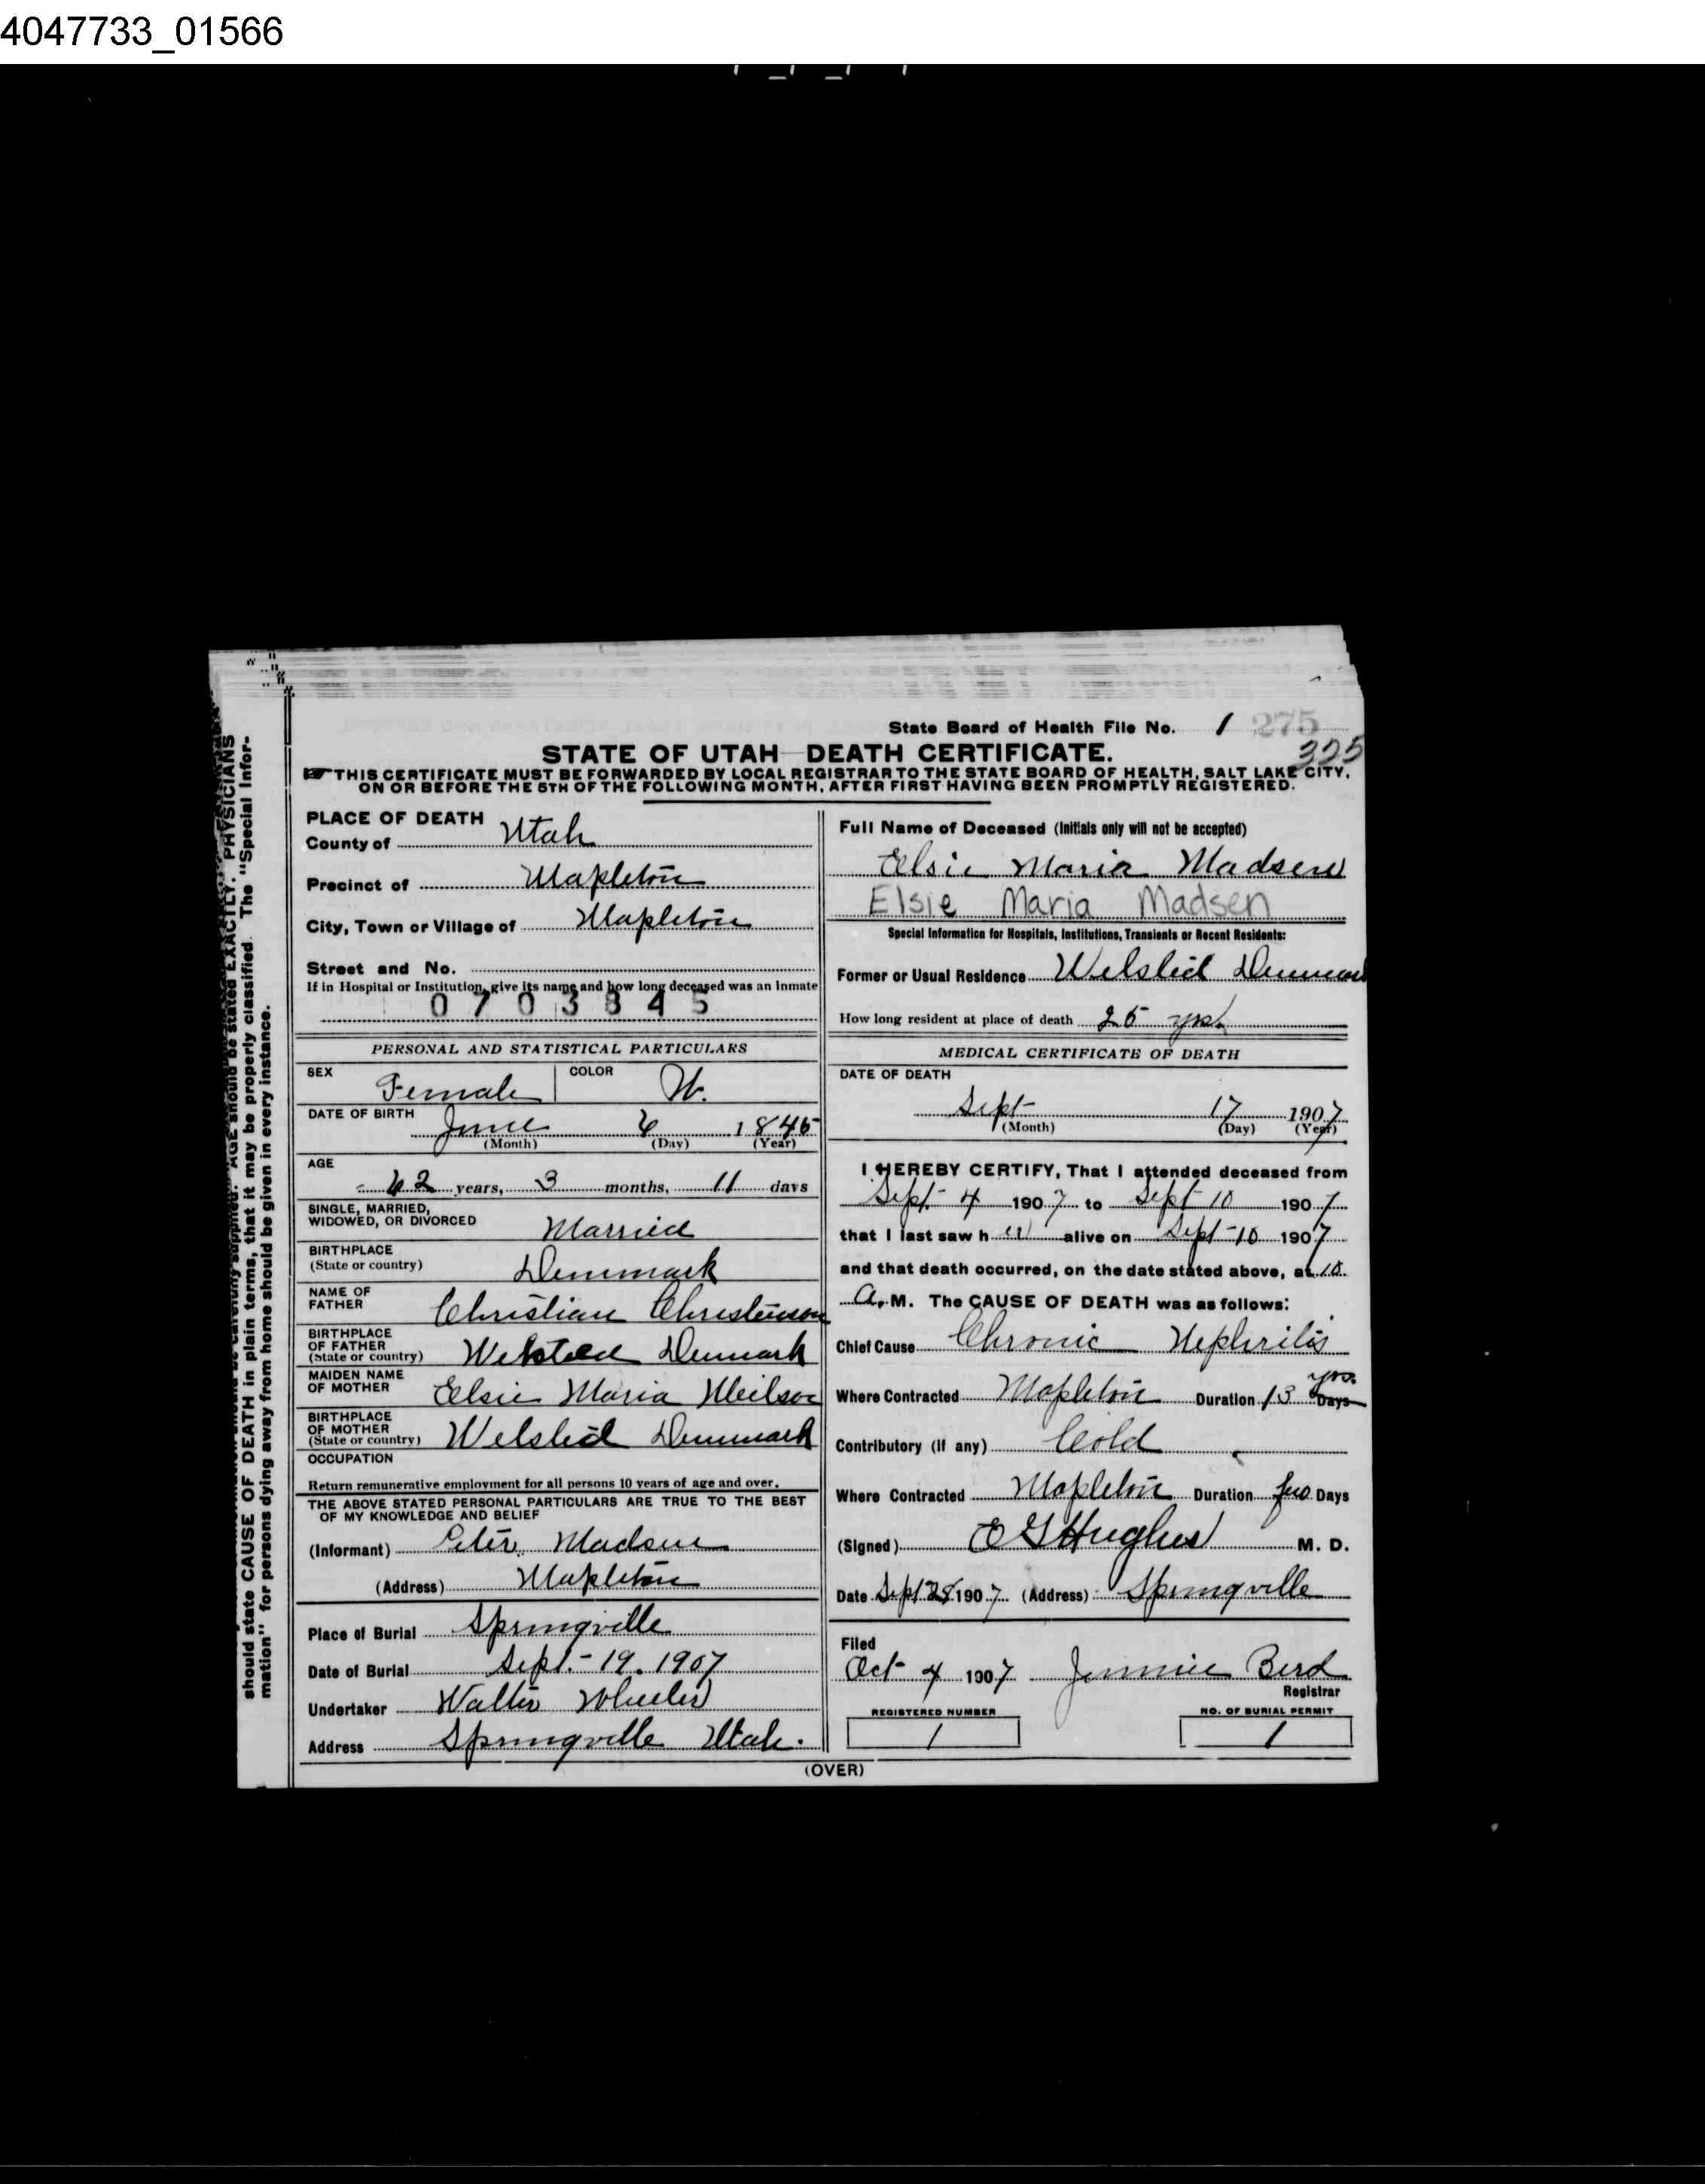 4047733_01566
State Board of Health File No. 1 275
325
STATE OF UTAH—DEATH CERTIFICATE.
THIS CERTIFICATE MUST BE FORWARDED BY LOCAL REGISTRAR TO THE STATE BOARD OF HEALTH, SALT LAKE CITY,
ON OR BEFORE THE 5TH OF THE FOLLOWING MONTH, AFTER FIRST HAVING BEEN PROMPTLY REGISTERED.
PLACE OF DEATH
County of Utah
Precinct of Mapleton
City, Town or Village of Mapleton
Street and No.
If in Hospital or Institution, give its name and how long deceased was an Inmate
0 7 0 3 8 4 5
PERSONAL AND STATISTICAL PARTICULARS
SEX Female COLOR W.
DATE OF BIRTH June 6 1845
(Month) (Day) (Year)
AGE
62 years, 3 months, 11 days
SINGLE, MARRIED,
WIDOWED, OR DIVORCED Married
BIRTHPLACE
(State or country) Denmark
NAME OF
FATHER Christian Christenson
BIRTHPLACE
OF FATHER
(State or country) Denmark
MAIDEN NAME
OF MOTHER Elsie Maria Neilson
BIRTHPLACE
OF MOTHER
(State or country) Welsted Denmark
OCCUPATION
Return remunerative employment for all persons 10 years of age and over.
THE ABOVE STATED PERSONAL PARTICULARS ARE TRUE TO THE BEST
OF MY KNOWLEDGE AND BELIEF
(Informant) Peter Madsen
(Address) Mapleton
Place of Burial Springville
Date of Burial Sept.-19.1907
Undertaker Walter Wheeler
Address Springville Utah.
Full Name of Deceased (Initials only will not be accepted)
Elsie Maria Madsen
Elsie Maria Madsen
Special Information for Hospitals, Institutions, Transients or Recent Residents:
Former or Usual Residence Welsted Denmark
How long resident at place of death 25 yrs.
MEDICAL CERTIFICATE OF DEATH
DATE OF DEATH
Sept 17 1907
(Month) (Day) (Year)
I HEREBY CERTIFY, That I attended deceased from
Sept-4 1907 to Sept 10 1907
that I last saw h er alive on Sept-10 1907
and that death occurred, on the date stated above, at 10
A. M. The CAUSE OF DEATH was as follows:
Chief Cause Chronic Nephritis
Where Contracted Mapleton Duration 13 yrs. Days
Contributory (if any) Cold
Where Contracted Mapleton Duration few Days
(Signed) E G Hughes M. D.
Date Sept 28 1907 (Address) Springville
Filed
Oct-4 1907 Jennie Bird
Registrar
REGISTERED NUMBER NO. OF BURIAL PERMIT
1 1
(OVER)
AGE should be stated EXACTLY. PHYSICIANS
should state CAUSE OF DEATH in plain terms, that it may be properly classified. The "Special Infor-
mation" for persons dying away from home should be given in every instance.